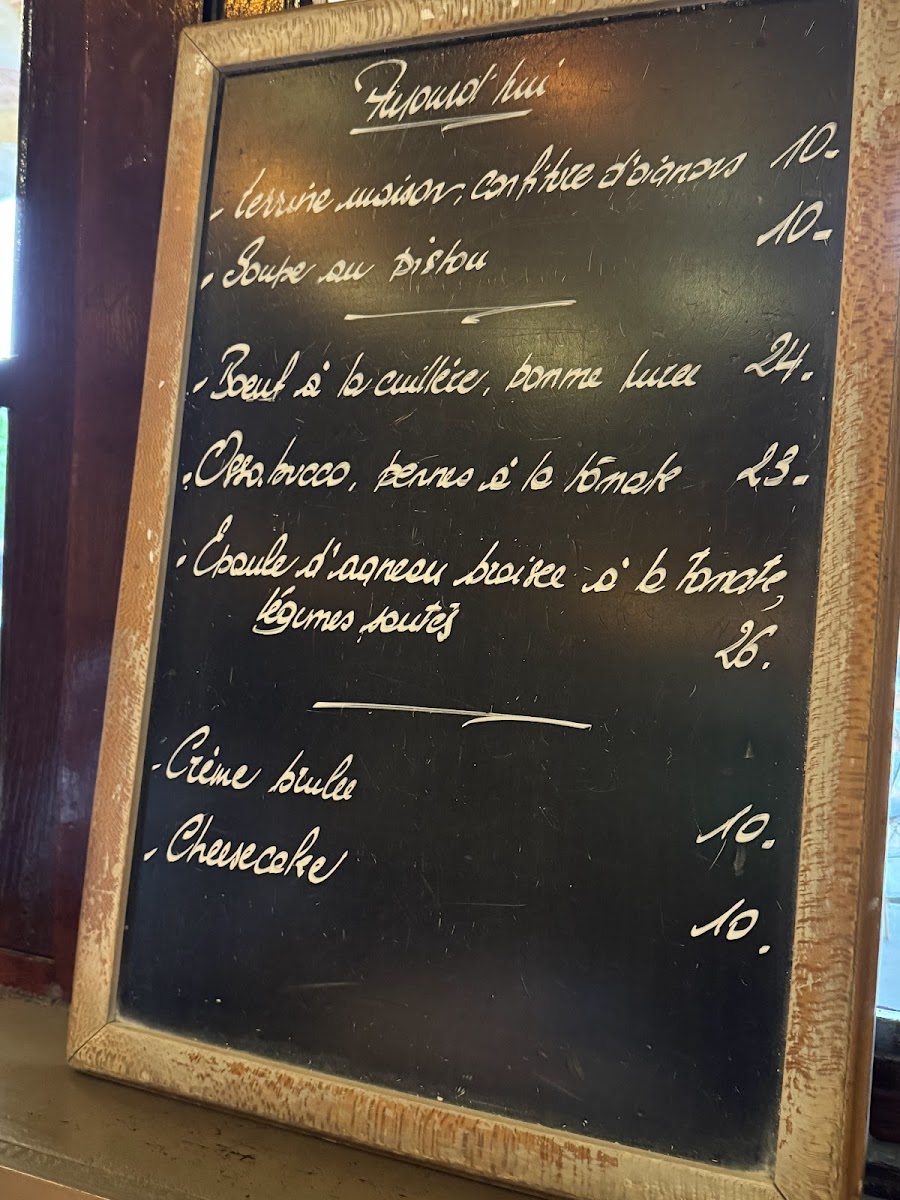 Aujourd'hui
- Terrine maison, confiture d'oignons 10.-
- Soupe au pistou 10.-
- Boeuf à la cuillère, pomme purée 24.-
- Osso bucco, pennes à la tomate 23.-
- Epaule d'agneau braisée à la tomate,
légumes sautés 26.-
- Crème brulée 10.-
- Cheesecake 10.-